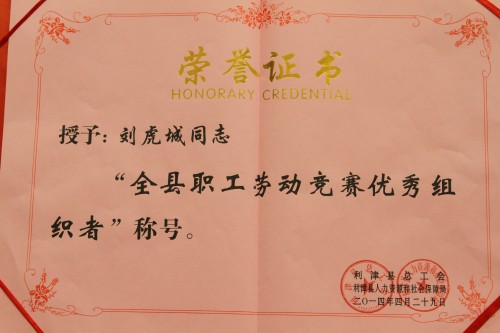 荣誉证书
HONORARY CREDENTIAL
授予：刘虎城同志
“全县职工劳动竞赛优秀组
织者”称号。
利津县总工会
利津县人力资源和社会保障局
二〇一四年四月二十九日